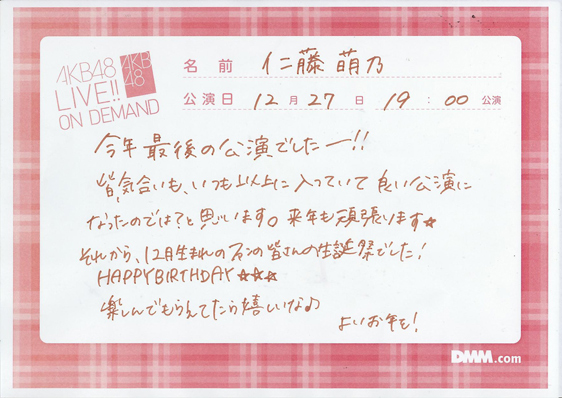 AKB48
LIVE!!
ON DEMAND
AKB
48
名前 仁藤萌乃
公演日 12月27日 19:00公演
今年最後の公演でしたー!!
皆、気合いも、いつも以上に入っていて良い公演に
なったのでは?と思います。来年も頑張ります☆
それから、12月生まれのファンの皆さんの生誕祭でした!
HAPPYBIRTHDAY☆☆☆
楽しんでもらえてたら嬉しいな♪
よいお年を!
DMM.com